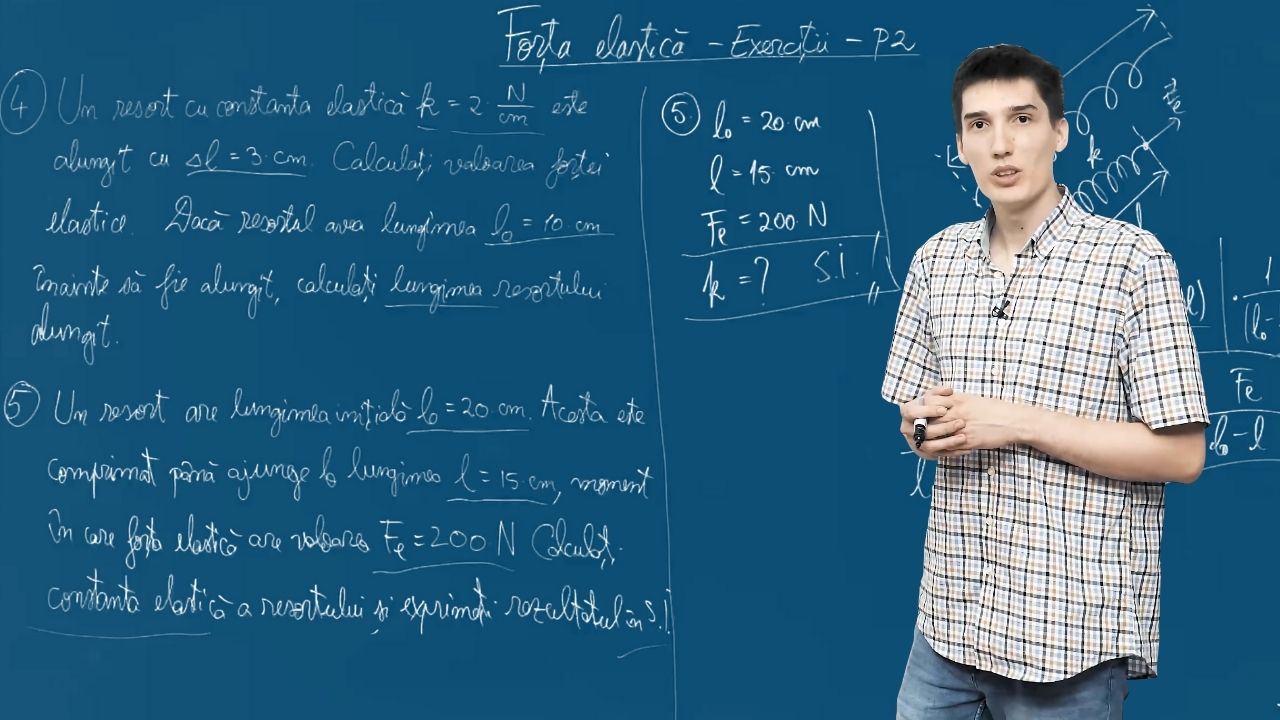 Forța elastică - Exerciții - P2
④ Un resort cu constanta elastică k = 2 · N/cm este
alungit cu Δl = 3 · cm. Calculați valoarea forței
elastice. Dacă resortul avea lungimea l₀ = 10 · cm
înainte să fie alungit, calculați lungimea resortului
alungit.
⑤ Un resort are lungimea inițială l₀ = 20 · cm. Acesta este
comprimat până ajunge la lungimea l = 15 · cm, moment
în care forța elastică are valoarea Fe = 200 N Calculați
constanta elastică a resortului și exprimați rezultatul în S.I.
⑤ l₀ = 20 · cm
l = 15 · cm
Fe = 200 · N
k = ? S.I.!
Fe
k
l
l) | · 1/(l₀-
Fe
l₀ - l
l